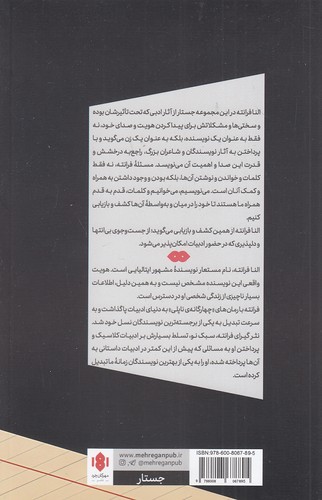 النا فرانته در این مجموعه جستار از آثار ادبی که تحت تأثیرشان بوده
و سختی‌ها و مشکلاتش برای پیدا کردن هویت و صدای خود، نه
فقط به عنوان یک نویسنده، بلکه به عنوان یک زن می‌گوید و با
پرداختن به آثار نویسندگان و شاعران بزرگ، راجع‌به درخشش و
قدرت این صدا و اهمیت آن می‌نویسد. مسئلهٔ فرانته، نه فقط
کلمات و خواندن و نوشتن آن‌ها، بلکه بودن و وجود داشتن به همراه
و کمک آنان است. می‌نویسیم، می‌خوانیم و کلمات، قدم به قدم
همراه ما هستند تا خود را در میان و به‌واسطهٔ آن‌ها کشف و بازیابی
کنیم.
النا فرانته از همین کشف و بازیابی می‌گوید؛ از جست‌وجوی بی‌انتها
و دلپذیری که در حضور ادبیات امکان‌پذیر می‌شود.
النا فرانته، نام مستعار نویسندهٔ مشهور ایتالیایی است. هویت
واقعی این نویسنده مشخص نیست و به همین دلیل، اطلاعات
بسیار ناچیزی از زندگی شخصی او در دسترس است.
فرانته با رمان‌های «چهارگانه‌ی ناپلی» به دنیای ادبیات پا گذاشت و به
سرعت تبدیل به یکی از برجسته‌ترین نویسندگان نسل خود شد.
نثر گیرای فرانته، سبک نو، تسلط بسیارش بر ادبیات کلاسیک و
پرداختن او به مسائلی که پیش از این کمتر در ادبیات داستانی به
آن‌ها پرداخته شده؛ او را به یکی از بهترین نویسندگان زمانهٔ ما تبدیل
کرده است.
www.mehreganpub.ir
@mehreganpub
جستار
ISBN: 978-600-8067-89-5
9 786008 067895